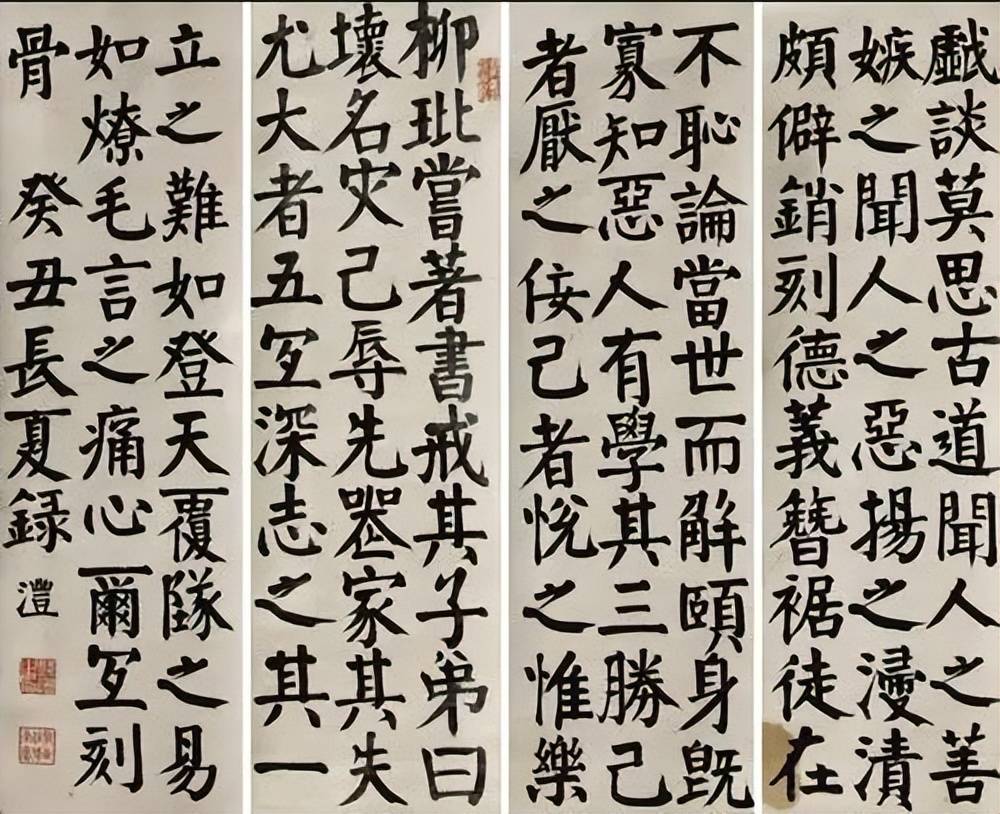 戲談莫思古道聞人之善
嫉之聞人之惡揚之浸漬
頗僻銷刻德義簪裾徒在
不恥論當世而解頤身既
寡知惡人有學其三勝己
者厭之佞己者悅之惟樂
柳玭嘗著書戒其子弟曰
壞名灾己辱先喪家其失
尤大者五宜深志之其一
立之難如登天覆隊之易
如燎毛言之痛心爾宜刻
骨 癸丑長夏録 澧